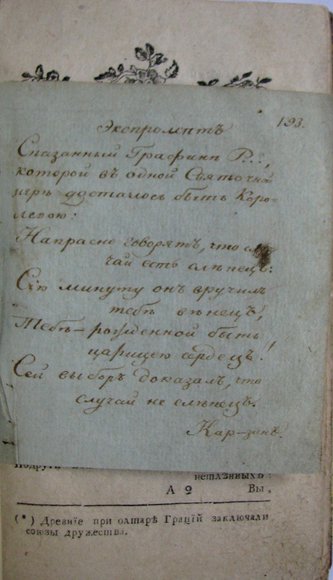 193.
Экспромптъ
Сказанный Графинѣ Р...,
которой въ одной Святочной
игрѣ досталось быть Коро-
левою:
Напрасно говорятъ, что слу-
чай есть слѣпецъ:
Сію минуту онъ вручилъ
тебѣ вѣнецъ,
Тебѣ – рожденной быть
царицею сердецъ!
Сей выборъ доказалъ, что
случай не слѣпецъ.
Кар-зинъ
Подруг
нетлѣнныхъ:
А 2 Вы,
(*) Древніе при олтарѣ Грацій заключали
союзы дружества.